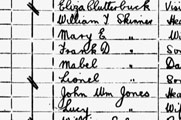 Eliza Clutterbuck Visi
William T Skinner Hea
Mary E " Wi
Frank D " So
Mabel " Da
Lionel " So
John Wm Jones Hea
Lucy " Wi